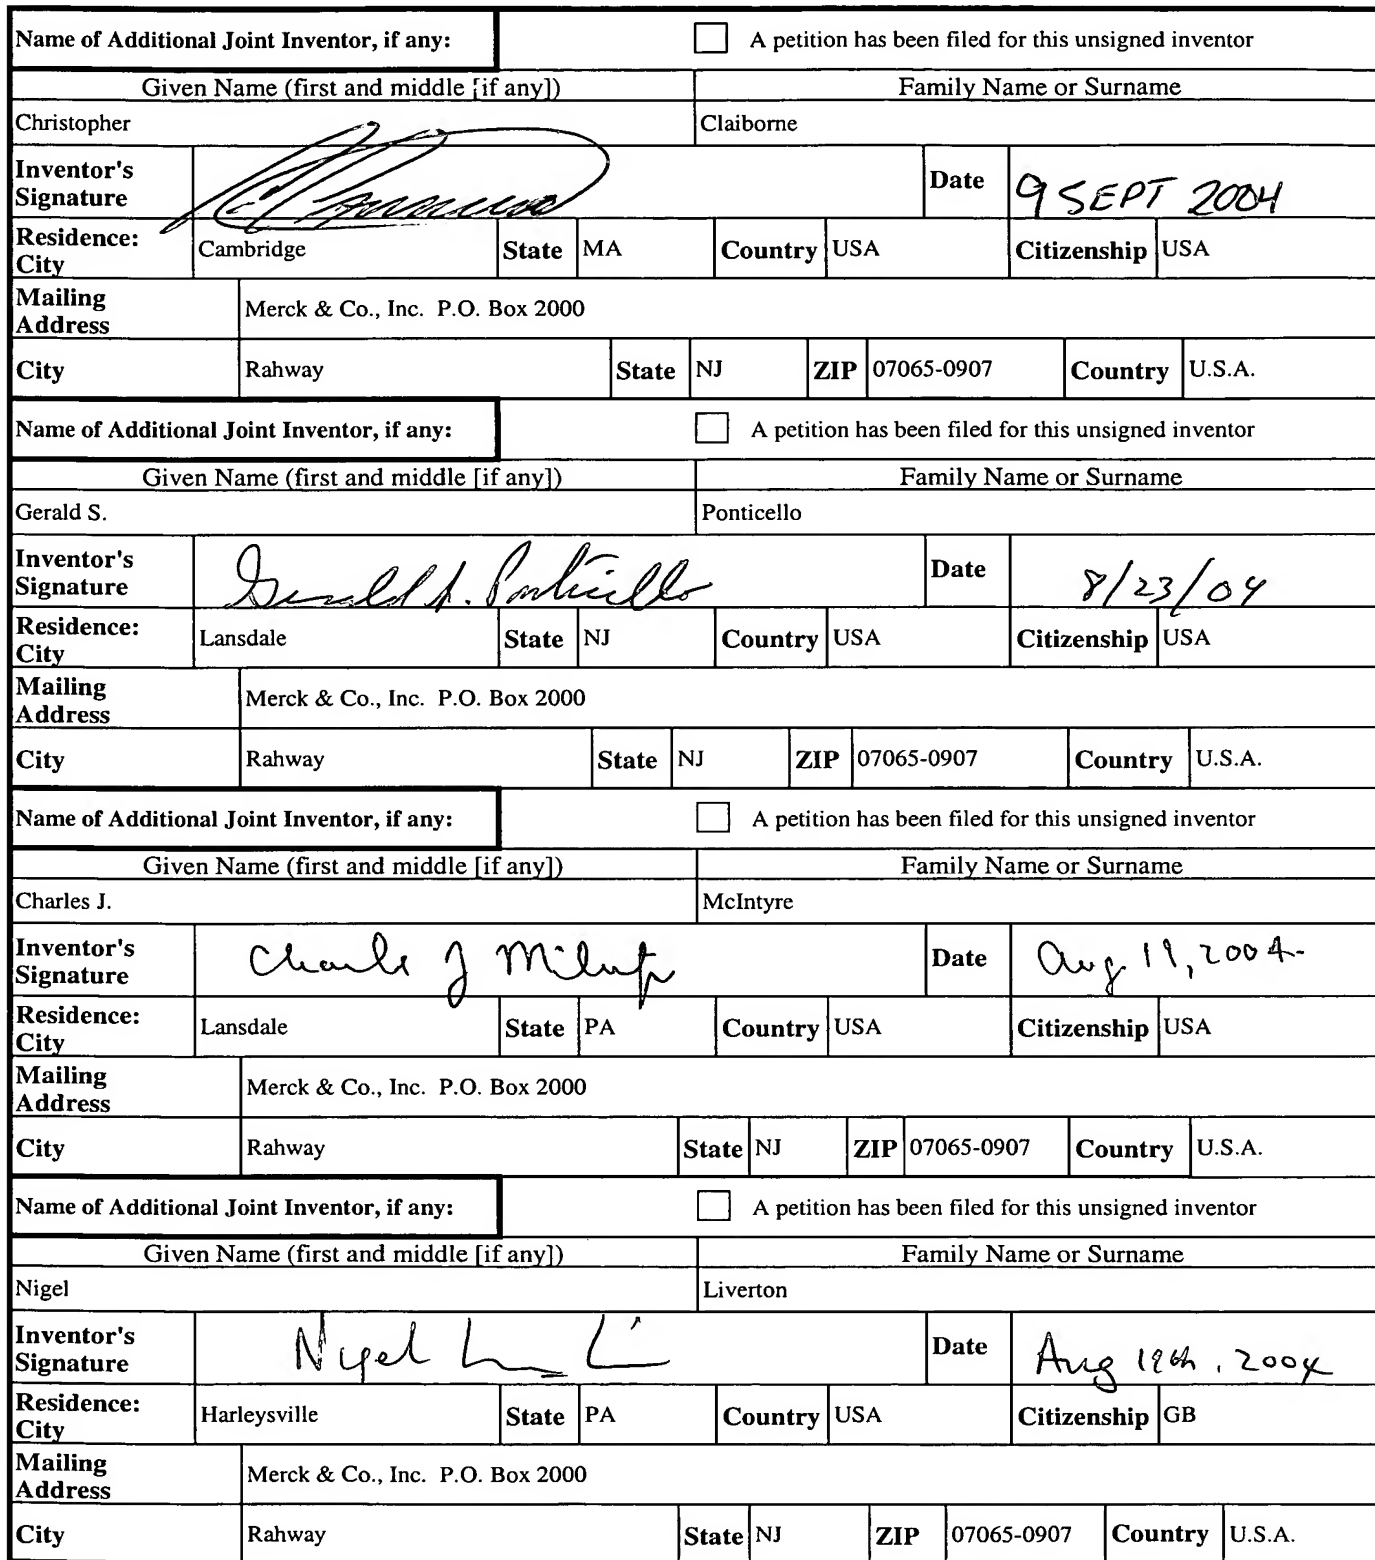 Name of Additional Joint Inventor, if any: A petition has been filed for this unsigned inventor
Given Name (first and middle [if any]) Family Name or Surname
Christopher Claiborne
Inventor's Signature Date 9 SEPT 2004
Residence: City Cambridge State MA Country USA Citizenship USA
Mailing Address Merck & Co., Inc. P.O. Box 2000
City Rahway State NJ ZIP 07065-0907 Country U.S.A.
Name of Additional Joint Inventor, if any: A petition has been filed for this unsigned inventor
Given Name (first and middle [if any]) Family Name or Surname
Gerald S. Ponticello
Inventor's Signature Gerald S. Ponticello Date 8/23/04
Residence: City Lansdale State NJ Country USA Citizenship USA
Mailing Address Merck & Co., Inc. P.O. Box 2000
City Rahway State NJ ZIP 07065-0907 Country U.S.A.
Name of Additional Joint Inventor, if any: A petition has been filed for this unsigned inventor
Given Name (first and middle [if any]) Family Name or Surname
Charles J. McIntyre
Inventor's Signature Charles J McIntyre Date Aug 19, 2004
Residence: City Lansdale State PA Country USA Citizenship USA
Mailing Address Merck & Co., Inc. P.O. Box 2000
City Rahway State NJ ZIP 07065-0907 Country U.S.A.
Name of Additional Joint Inventor, if any: A petition has been filed for this unsigned inventor
Given Name (first and middle [if any]) Family Name or Surname
Nigel Liverton
Inventor's Signature Nigel Date Aug 19th, 2004
Residence: City Harleysville State PA Country USA Citizenship GB
Mailing Address Merck & Co., Inc. P.O. Box 2000
City Rahway State NJ ZIP 07065-0907 Country U.S.A.